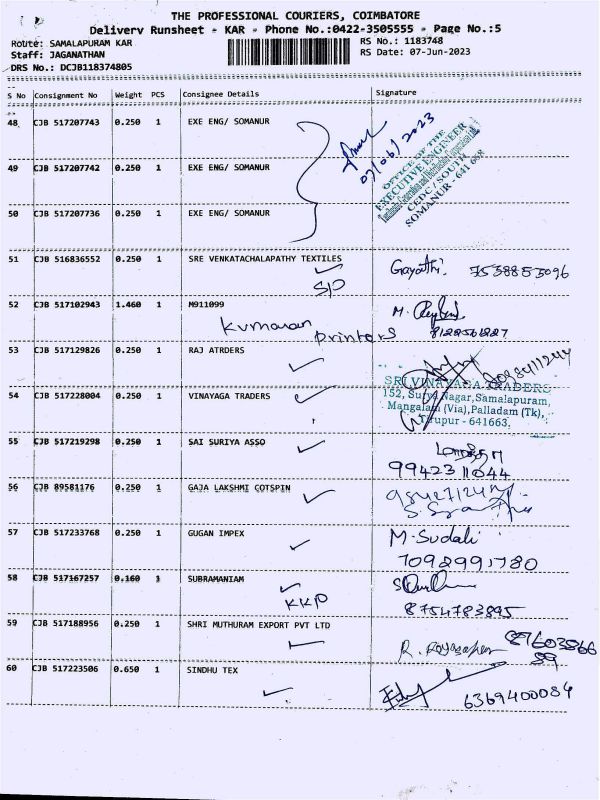 THE PROFESSIONAL COURIERS, COIMBATORE
Delivery Runsheet - KAR - Phone No.:0422-3505555 - Page No.:5
Route: SAMALAPURAM KAR RS No.: 1183748
Staff: JAGANATHAN RS Date: 07-Jun-2023
DRS No.: DCJB118374805
S No Consignment No Weight PCS Consignee Details Signature
48 CJB 517207743 0.250 1 EXE ENG/ SOMANUR
07/06/2023
OFFICE OF THE
EXECUTIVE ENGINEER
CEDC / SOUTH
SOMANUR - 641 668
49 CJB 517207742 0.250 1 EXE ENG/ SOMANUR
50 CJB 517207736 0.250 1 EXE ENG/ SOMANUR
51 CJB 516836552 0.250 1 SRE VENKATACHALAPATHY TEXTILES
Gayathi. 7538853096
52 CJB 517102943 1.460 1 M911099
Kumaran Printers
M.
8122561227
53 CJB 517129826 0.250 1 RAJ ATRDERS
54 CJB 517228004 0.250 1 VINAYAGA TRADERS
SRI VINAYAGA TRADERS
152, Surya Nagar, Samalapuram,
Mangalam (Via), Palladam (Tk),
Tirupur - 641663.
55 CJB 517219298 0.250 1 SAI SURIYA ASSO
9942311044
56 CJB 89581176 0.250 1 GAJA LAKSHMI COTSPIN
57 CJB 517233768 0.250 1 GUGAN IMPEX
M. Sudali
7092991780
58 CJB 517167257 0.160 1 SUBRAMANIAM
KKP
8754783895
59 CJB 517188956 0.250 1 SHRI MUTHURAM EXPORT PVT LTD
R.
60 CJB 517223506 0.650 1 SINDHU TEX
6369400084